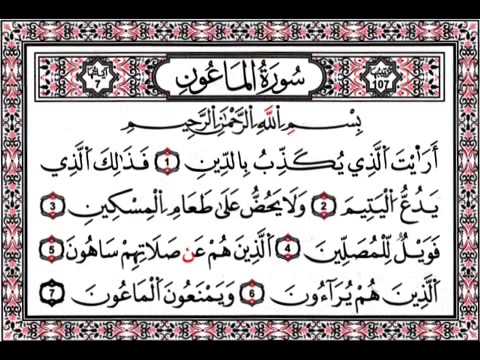 آياتها 7 سُورَةُ الْمَاعُونِ ترتيبها 107
بِسْمِ اللَّهِ الرَّحْمَٰنِ الرَّحِيمِ
أَرَأَيْتَ الَّذِي يُكَذِّبُ بِالدِّينِ 1 فَذَٰلِكَ الَّذِي
يَدُعُّ الْيَتِيمَ 2 وَلَا يَحُضُّ عَلَىٰ طَعَامِ الْمِسْكِينِ 3
فَوَيْلٌ لِّلْمُصَلِّينَ 4 الَّذِينَ هُمْ عَن صَلَاتِهِمْ سَاهُونَ 5
الَّذِينَ هُمْ يُرَاءُونَ 6 وَيَمْنَعُونَ الْمَاعُونَ 7